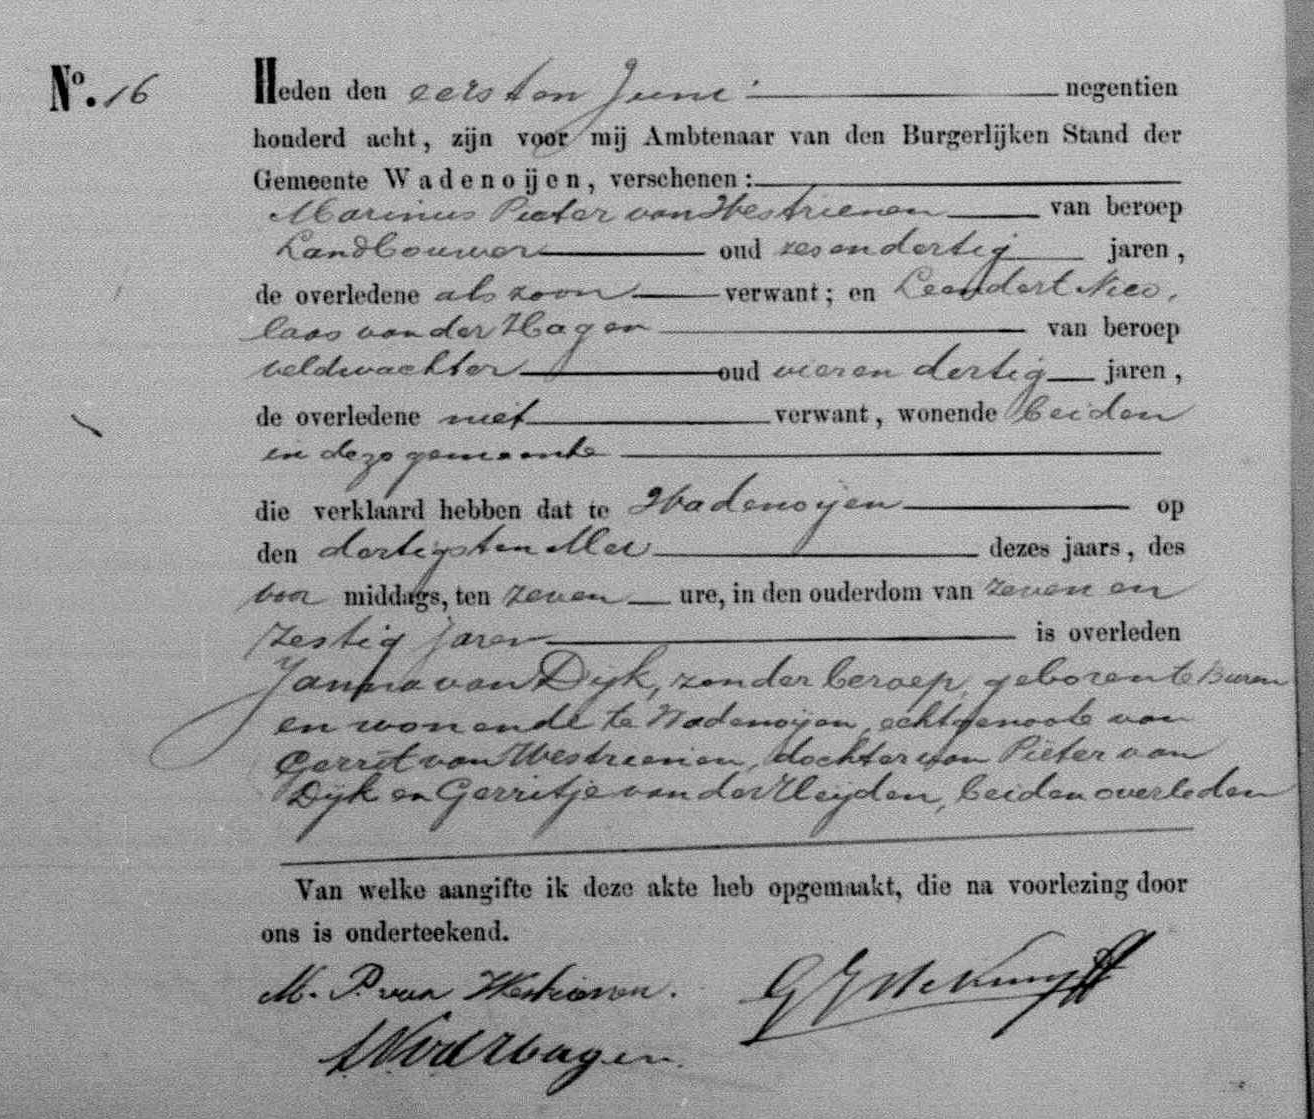 No. 16
Heden den eersten Juni negentien
honderd acht, zijn voor mij Ambtenaar van den Burgerlijken Stand der
Gemeente Wadenoijen, verschenen:
Marinus Pieter van Westrienen van beroep
Landbouwer oud zesendertig jaren,
de overledene als zoon verwant; en Leendert Nico,
laas van der Hagen van beroep
veldwachter oud vieren dertig jaren,
de overledene niet verwant, wonende beiden
in deze gemeente
die verklaard hebben dat te Wadenoijen op
den dertigsten Mei dezes jaars, des
voor middags, ten zeven ure, in den ouderdom van zeven en
zestig jaren is overleden
Janna van Dijk, zonder beroep, geboren te Buren
en wonende te Wadenoijen, echtgenoote van
Gerrit van Westrienen, dochter van Pieter van
Dijk en Gerritje van der Heijden, beiden overleden
Van welke aangifte ik deze akte heb opgemaakt, die na voorlezing door
ons is onderteekend.
M. P. van Westrienen.
LNvdHagen.